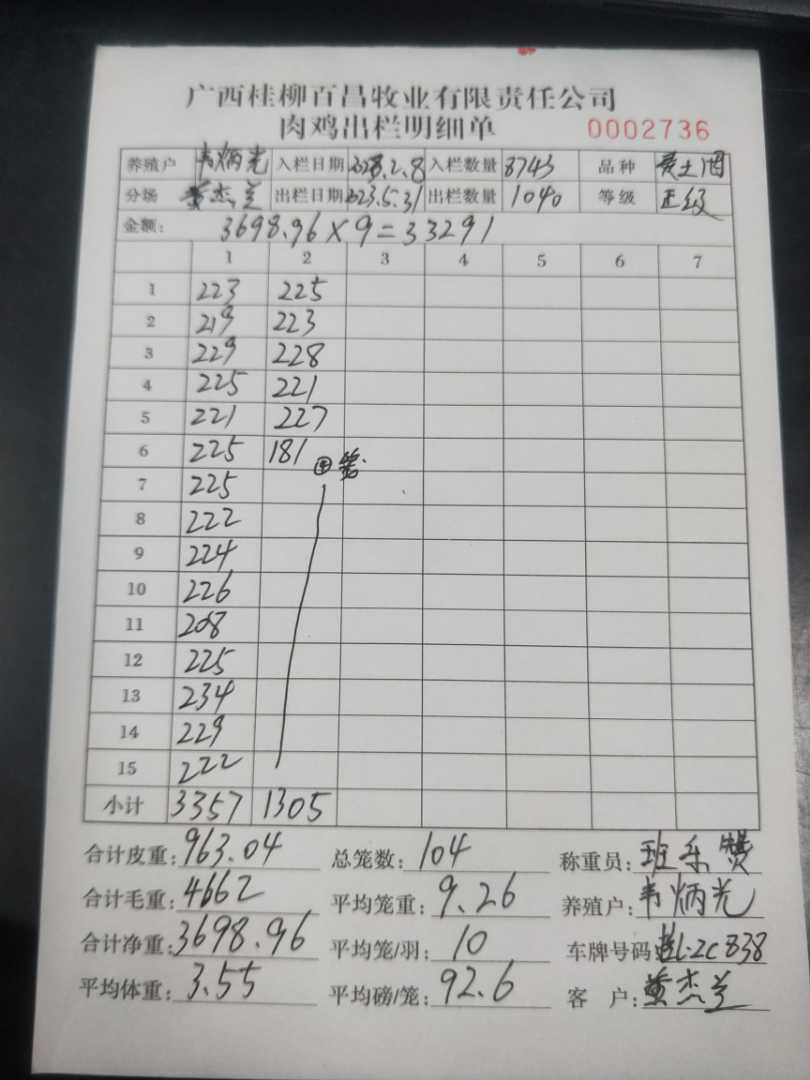 广西桂柳百昌牧业有限责任公司
肉鸡出栏明细单 0002736
养殖户 韦炳光 入栏日期 2023.2.8 入栏数量 8743 品种 黄土阉
分场 黄杰兰 出栏日期 2023.5.31 出栏数量 1040 等级 正级
金额: 3698.96×9=33291
1 2 3 4 5 6 7
1 223 225
2 219 223
3 229 228
4 225 221
5 221 227
6 225 181 ④笼
7 225
8 222
9 224
10 226
11 208
12 225
13 234
14 229
15 222
小计 3357 1305
合计皮重: 963.04 总笼数: 104 称重员: 班乐赞
合计毛重: 4662 平均笼重: 9.26 养殖户: 韦炳光
合计净重: 3698.96 平均笼/羽: 10 车牌号码: L·2C838
平均体重: 3.55 平均磅/笼: 92.6 客户: 黄杰兰